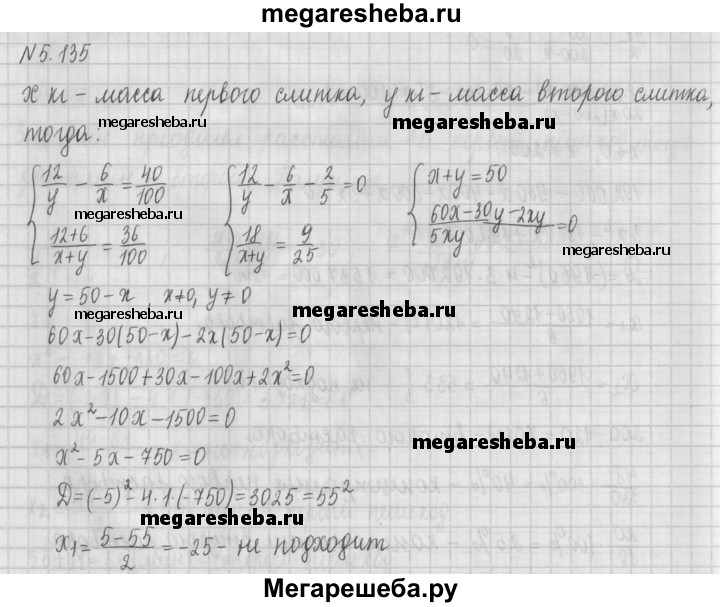 megaresheba.ru
N 5.135
x кг - масса первого слитка, y кг - масса второго слитка,
тогда: megaresheba.ru megaresheba.ru
{ 12/y - 6/x = 40/100 { 12/y - 6/x - 2/5 = 0 { x+y=50
{ (12+6)/(x+y) = 36/100 { 18/(x+y) = 9/25 { (60x-30y-2xy)/5xy = 0
megaresheba.ru megaresheba.ru
y = 50 - x, x≠0, y≠0
megaresheba.ru megaresheba.ru
60x-30(50-x)-2x(50-x)=0
60x-1500+30x-100x+2x²=0
megaresheba.ru
2x²-10x-1500=0
x²-5x-750=0
megaresheba.ru
D=(-5)²-4·1·(-750)=3025=55²
megaresheba.ru
x₁= (5-55)/2 = -25 - не подходит
Мегарешеба.ру